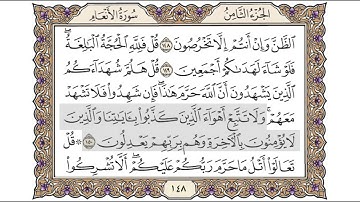 الجزء الثامن سورة الأنعام
الظَّنَّ وَإِنْ أَنتُمْ إِلَّا تَخْرُصُونَ ۝١٤٨ قُلْ فَلِلَّهِ الْحُجَّةُ الْبَالِغَةُ ۖ
فَلَوْ شَاءَ لَهَدَىٰكُمْ أَجْمَعِينَ ۝١٤٩ قُلْ هَلُمَّ شُهَدَاءَكُمُ
الَّذِينَ يَشْهَدُونَ أَنَّ اللَّهَ حَرَّمَ هَٰذَا ۖ فَإِن شَهِدُوا فَلَا تَشْهَدْ
مَعَهُمْ ۚ وَلَا تَتَّبِعْ أَهْوَاءَ الَّذِينَ كَذَّبُوا بِـَٔايَٰتِنَا وَالَّذِينَ
لَا يُؤْمِنُونَ بِالْآخِرَةِ وَهُم بِرَبِّهِمْ يَعْدِلُونَ ۝١٥٠ ۞ قُلْ
تَعَالَوْا أَتْلُ مَا حَرَّمَ رَبُّكُمْ عَلَيْكُمْ ۖ أَلَّا تُشْرِكُوا
١٤٨